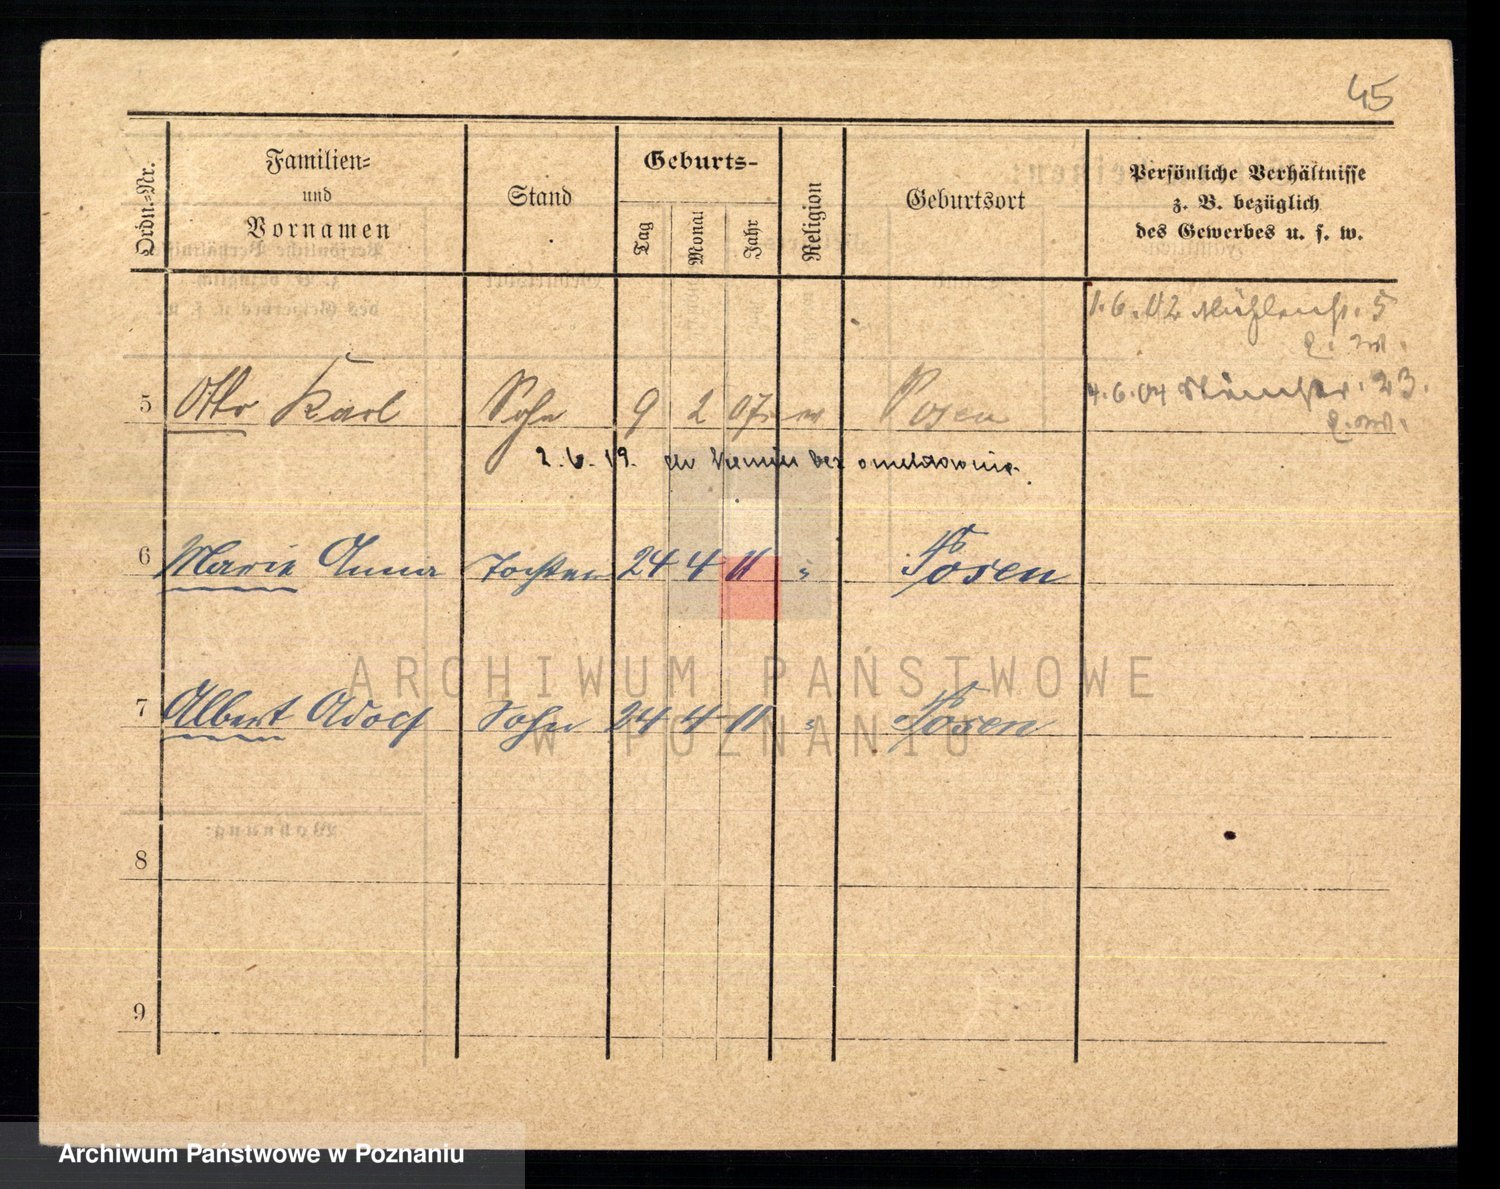 45
Ordn.-Nr.
Familien-
und
Vornamen
Stand
Geburts-
Tag
Monat
Jahr
Religion
Geburtsort
Persönliche Verhältnisse
z. B. bezüglich
des Gewerbes u. s. w.
1.6.02 Mühlenstr. 5
4.6.04 23.
5 Otto Karl Sohn 9 2 07 Posen
2.6.19. do Niemiec bez omeldowania.
6 Marie Anna Tochter 24 4 11 " Posen
7 Albert Adolf Sohn 24 4 11 " Posen
8
9
Wohnung:
ARCHIWUM PAŃSTWOWE
W POZNANIU
Archiwum Państwowe w Poznaniu